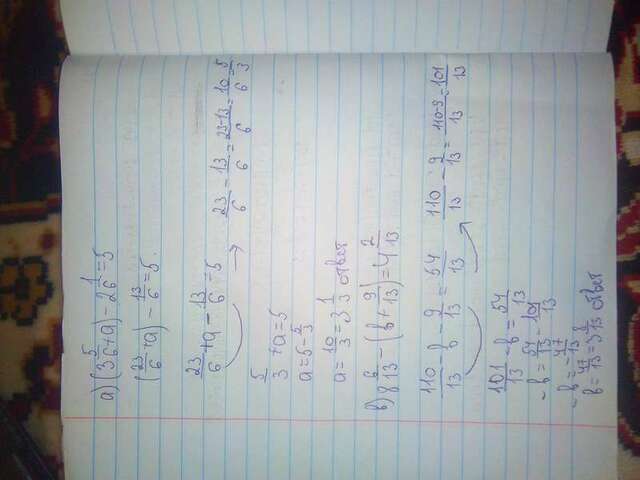 а) (3 5/6 + а) - 2 1/6 = 5
(23/6 + а) - 13/6 = 5.
23/6 + а - 13/6 = 5 → 23/6 - 13/6 = 23-13/6 = 10/6 = 5/3
5/3 + а = 5
а = 5 - 5/3
а = 10/3 = 3 1/3 ответ
в) 8 6/13 - (в + 9/13) = 4 2/13
110/13 - в - 9/13 = 54/13 → 110/13 - 9/13 = 110-9/13 = 101/13
101/13 - в = 54/13
-в = 54/13 - 101/13
-в = -47/13
в = 47/13 = 3 8/13 ответ